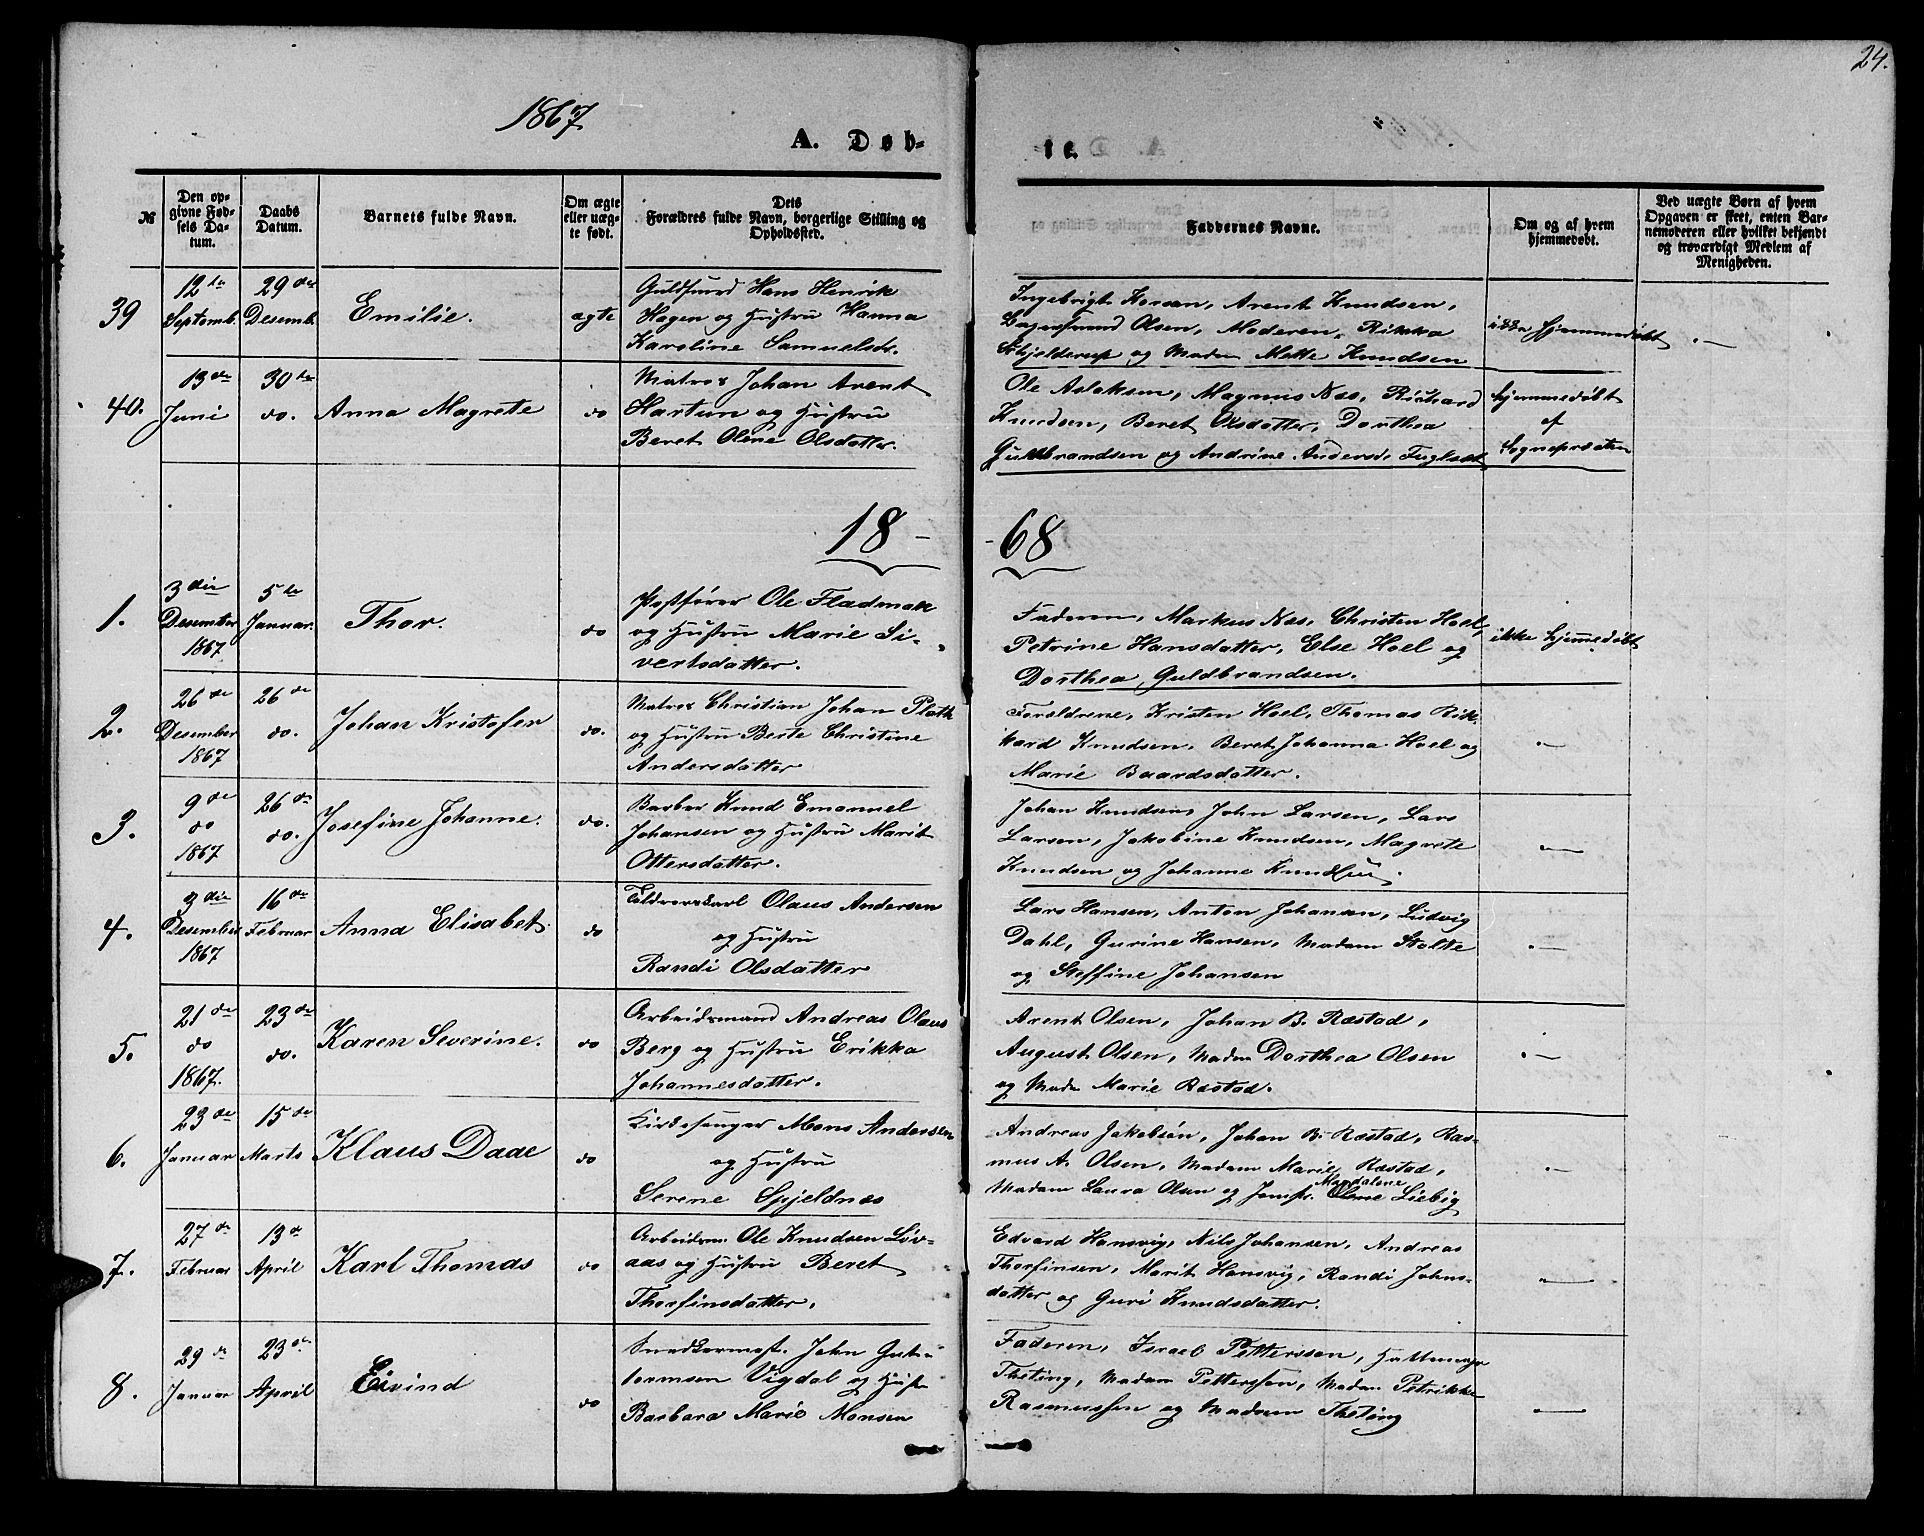 24.
1867
A. Døb-
te.
№
Den op-
givne Fød-
sels Da-
tum.
Daabs
Datum.
Barnets fulde Navn.
Om ægte
eller uæg-
te født.
Dets
Forældres fulde Navn, borgerlige Stilling og
Opholdssted.
Faddernes Navne.
Om og af hvem
hjemmedøbt.
Ved uægte Børn af hvem
Opgaven er skeet, enten Bar-
nemoderen eller hvilket bekjendt
og troværdigt Medlem af
Menigheden.
39
12te
Septemb.
29de
Desemb.
Emilie.
ægte
Guldsmed Hans Henrik
Hagen og Hustru Hanna
Karoline Samuelsdr.
Ingebrigt Arent Knudsen,
Olsen, Moderen, Rikka
Schjelderup og Madm Mette Knudsen
ikke hjemmedøbt
.—
40.
13de
Juni
30te
do.
Anna Magrete
do
Matros Johan Arent
Hartun og Hustru
Beret Oline Olsdatter.
Ole Aslaksen, Magnus Næs, Richard
Knudsen, Beret Olsdatter, Dorthea
Guldbrandsen og Andrine Andersd. Fuglset
hjemmedøbt
af
Sognepræsten
18 -
- 68
1.
3die
Desember
1867
5te
Januar.
Thor.
do
Postfører Ole Fladmark
og Hustru Marie Si-
vertsdatter.
Faderen, Markus Næs, Christen Hoel,
Petrine Hansdatter, Else Hoel og
Dorthea Guldbrandsen.
ikke hjemmedøbt
2.
26de
Desember
1867
26de
do.
Johan Kristofer
do.
Matros Christian Johan Plath
og Hustru Berte Christine
Andersdatter
Forældrene, Kristen Hoel, Thomas Rik-
kard Knudsen, Beret Johanna Hoel og
Marie Baardsdatter.
.—
3.
9de
do
1867
26de
do.
Josefine Johanne.
do.
Barber Knud Emanuel
Johansen og Hustru Marit
Ottersdatter.
Johan Knudsen, John Larsen, Lars
Larsen, Jakobine Knudsen, Magrete
Knudsen og Johanne Knudsen.
.—
4.
3die
Desember
1867
16de
Februar
Anna Elisabet.
do
Olaus Andersen
og Hustru
Randi Olsdatter
Lars Hansen, Anton Johansen, Ludvig
Dahl, Gurine Hansen, Madam Stolte
og Steffine Johansen
.—
5.
21de
do
1867.
23de
do.
Karen Severine.
do
Arbeidsmand Andreas Olaus
Berg og Hustru Erikka
Johannesdatter.
Arent Olsen, Johan B. Ræstad,
August Olsen, Madm Dorthea Olsen
og Madm Marie Ræstad.
.—
6.
23de
Januar
15de
Marts
Klaus Daae
do
Kirkesanger Mons Andersen
og Hustru
Serene Spjeldnæs
Andreas Jakobsøn, Johan B. Ræstad, Ras-
mus A. Olsen, Madam Marie Ræstad,
Mandalene
Madam Laura Olsen og Jomfr. Oline Liebig
.—
7.
27de
Februar
13de
April
Karl Thomas
do
Arbeidsm. Ole Knudsen Løv-
aas og Hustru Beret
Thorfinsdatter.
Edvard Hansvig, Nils Johansen, Andreas
Thorfinsen, Marit Hansvig, Randi Johns-
datter og Guri Knudsdatter.
.—
8.
29de
Januar
23de
April
Eivind
do
Snedkermest. John Gut-
tormsen Vigdal og Hust.
Barbara Marie Monsen
Faderen, Israel Pettersson, Hattemager
Theting, Madam Petterson, Madm Petrikke
Rasmussen og Madam Theting
.—